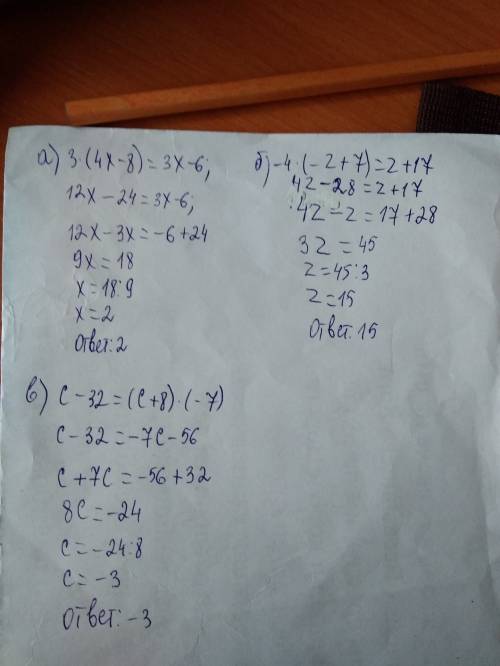 а) 3·(4x-8)=3x-6;
12x-24=3x-6;
12x-3x=-6+24
9x=18
x=18:9
x=2
Ответ: 2
б) -4·(-z+7)=z+17
4z-28=z+17
4z-z=17+28
3z=45
z=45:3
z=15
Ответ: 15
в) c-32=(c+8)·(-7)
c-32=-7c-56
c+7c=-56+32
8c=-24
c=-24:8
c=-3
Ответ: -3